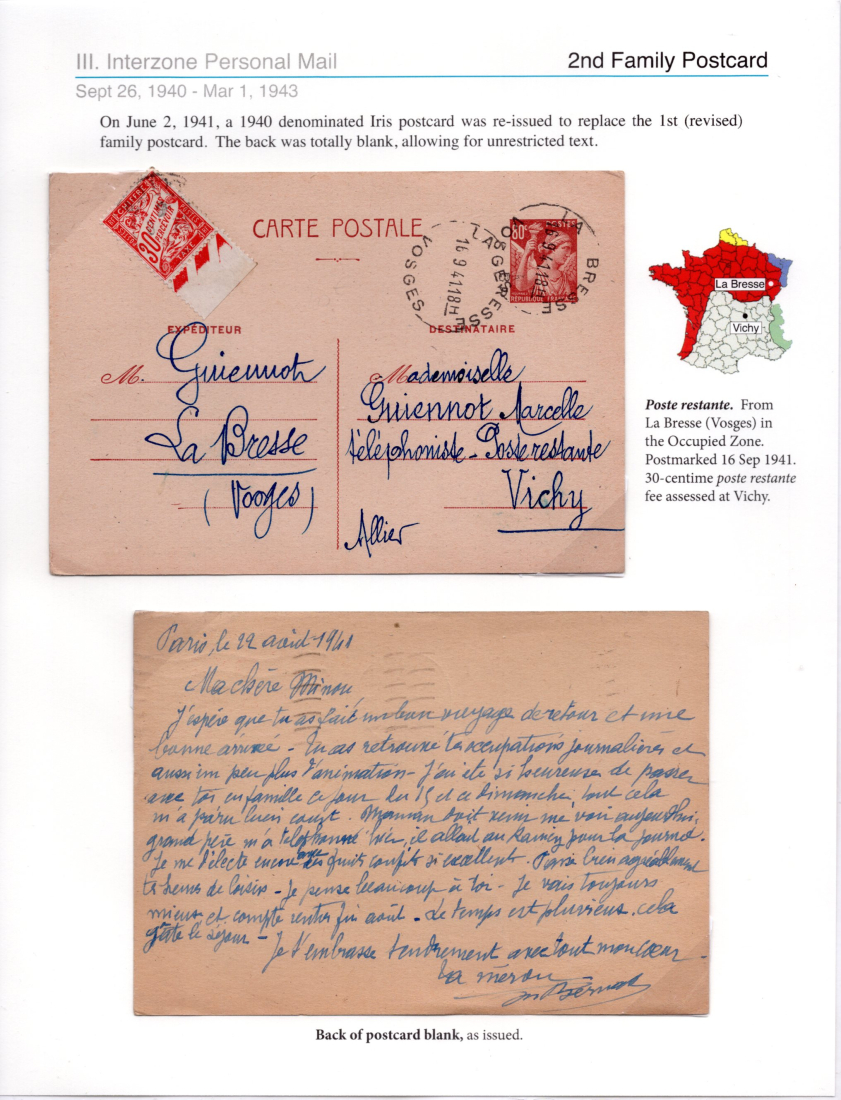 III. Interzone Personal Mail
2nd Family Postcard
Sept 26, 1940 - Mar 1, 1943
On June 2, 1941, a 1940 denominated Iris postcard was re-issued to replace the 1st (revised)
family postcard. The back was totally blank, allowing for unrestricted text.
CHIFFRE TAXE
30 CENTIMES
À PERCEVOIR
CARTE POSTALE
LA BRESSE
VOSGES
16 9 41 18H
LA BRESSE
VOSGES
16 9 41 18H
80c
POSTES
REPUBLIQUE FRANÇAISE
EXPÉDITEUR
DESTINATAIRE
M. Guiennot
La Bresse
(Vosges)
Mademoiselle
Guiennot Marcelle
téléphoniste - Poste restante
Vichy
Allier
La Bresse
Vichy
Poste restante. From
La Bresse (Vosges) in
the Occupied Zone.
Postmarked 16 Sep 1941.
30-centime poste restante
fee assessed at Vichy.
Paris, le 22 août 1941
Ma chère Minou,
J'espère que tu as fait un bon voyage de retour et une
bonne arrivée - Tu as retrouvé tes occupations journalières et
aussi un peu plus d'animation - J'ai été si heureuse de passer
avec toi, en famille ce jour du 15 et ce dimanche, tout cela
m'a paru bien court. Maman doit venir me voir aujourd'hui,
grand père m'a téléphoné hier, il allait au Raincy pour la journée.
Je me délecte encore avec tes fruits confits si excellents. Passe bien agréablement
tes heures de loisirs - Je pense beaucoup à toi - Je vais toujours
mieux et compte rentrer fin août - Le temps est pluvieux, cela
gâte le séjour - Je t'embrasse tendrement avec tout mon cœur -
Ta
Back of postcard blank, as issued.